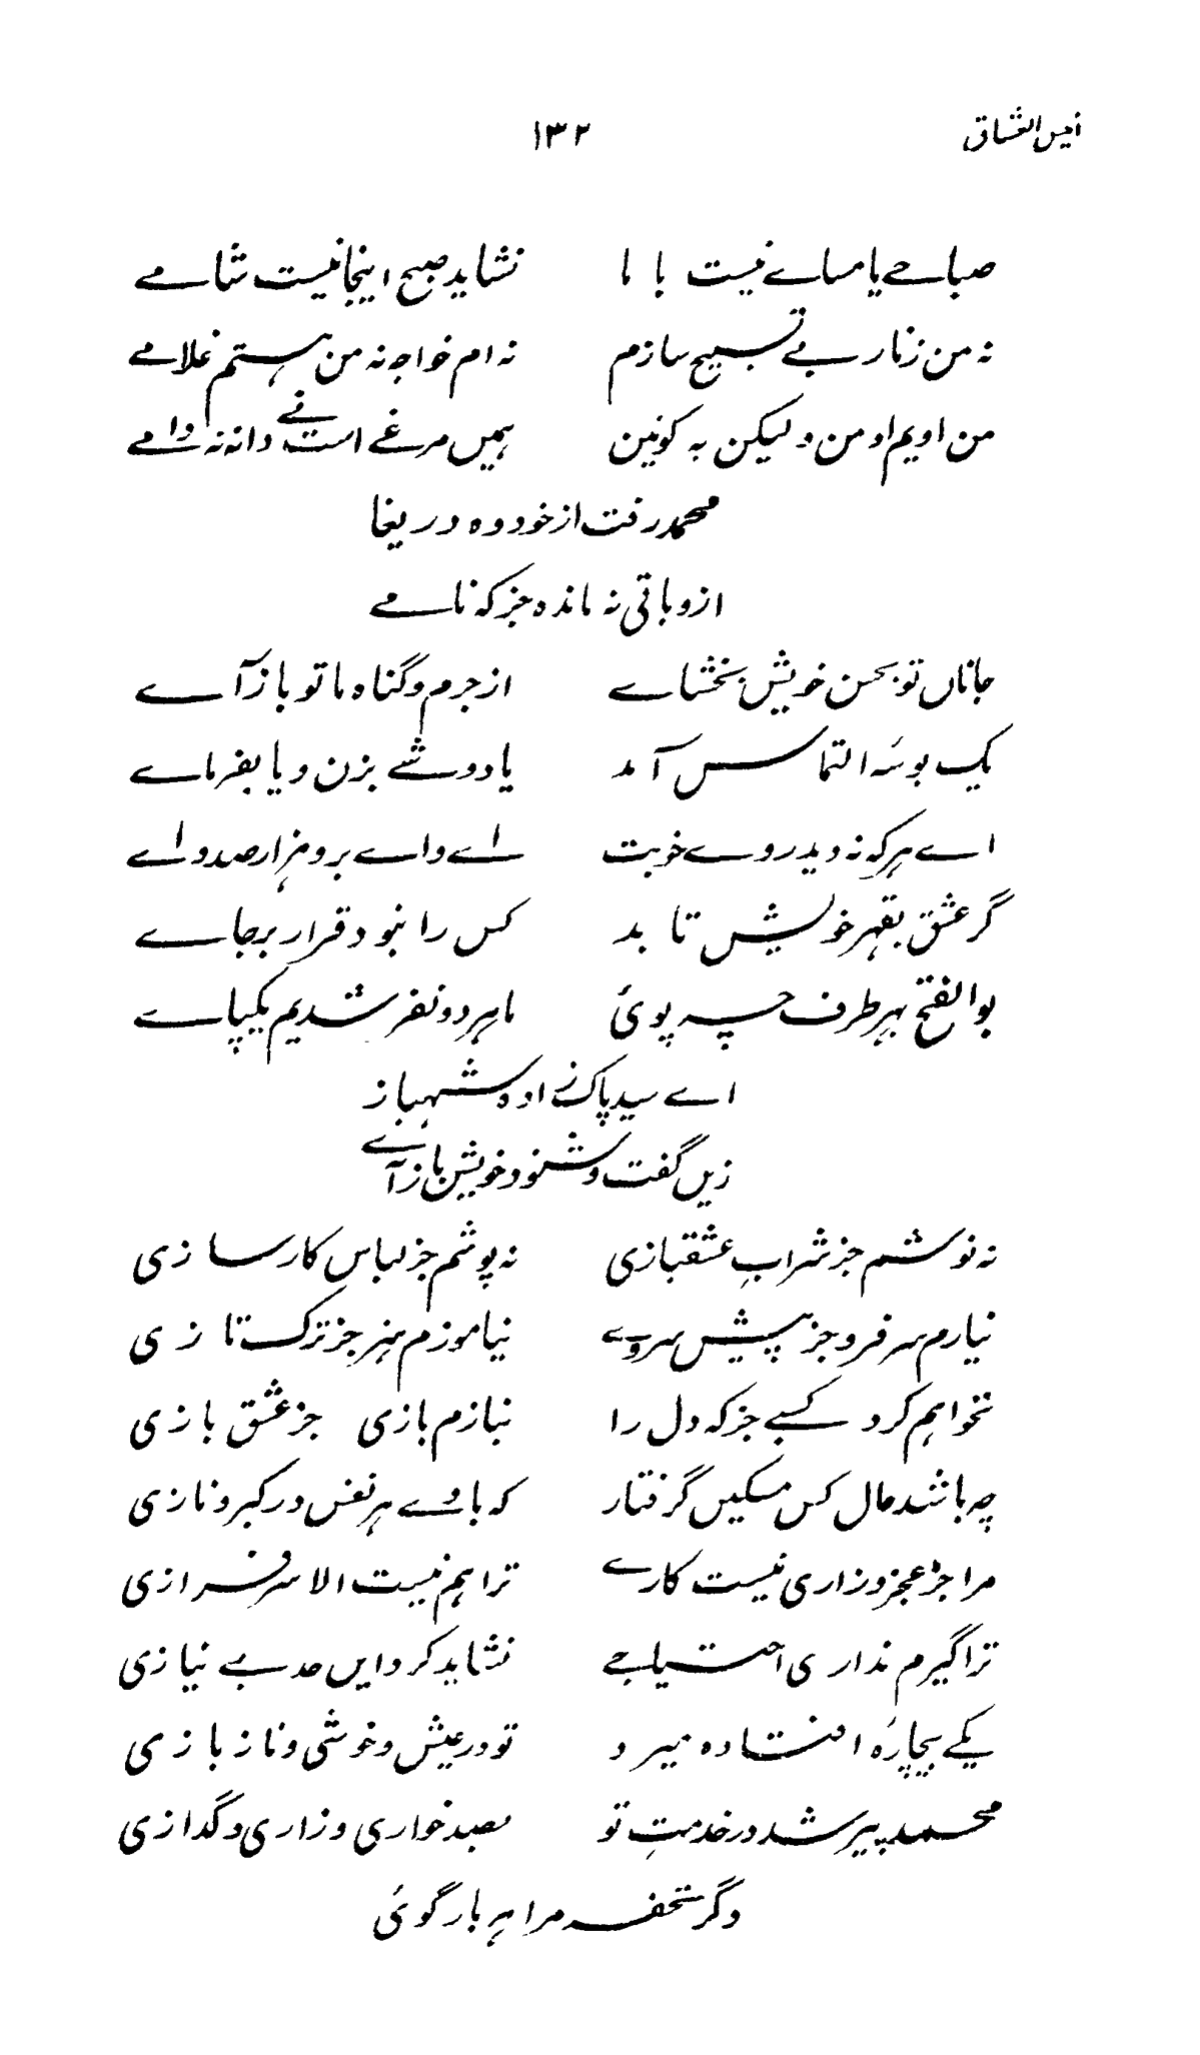 انیس العشاق ۱۳۲
صباحے یا مساے نیست با ما نشاید صبح اینجا نیست شامے
نه من زنار بے تسبیح سازم نه ام خواجه نه من هستم غلامے
من اویم او من و لیکن به کونین همیں مرغے است نے دانه نه دامے
محمد رفت از خود وه دریغا
ازو باقی نه مانده جز که نامے
جاناں تو بحسن خویش بخشاے از جرم و گناه ما تو باز آے
یک بوسۂ التماس آمد یا دوشے بزن و یا بفرماے
اے هر که نه دید روے خوبت اے واے برو هزار صد واے
گر عشق بقهر خویش تابد کس را نبود قرار بر جاے
بوالفتح بهر طرف چه پوئ ما هر دو نفر شدیم یکپاے
اے سید پاک زاده شهباز
زیں گفت و شنود خویش باز آے
نه نوشم جز شراب عشقبازی نه پوشم جز لباس کارسازی
نیارم سر فرو جز پیش سروے نیاموزم هنر جز ترکتازی
نخواهم کرد کسبے جز که دل را نبازم بازی جز عشق بازی
چه باشد حال کس مسکیں گرفتار که باوے هر نفس در کبر و نازی
مرا جز عجز و زاری نیست کارے ترا هم نیست الا سرفرازی
ترا گیرم نداری احتیاجے نشاید کرد ایں حد بے نیازی
یکے بیچارۂ افتاده میرد تو در عیش و خوشی و ناز بازی
محمد پیر شد در خدمتِ تو بصد خواری و زاری و گدازی
و گر تحفه مرا هر بار گوئ